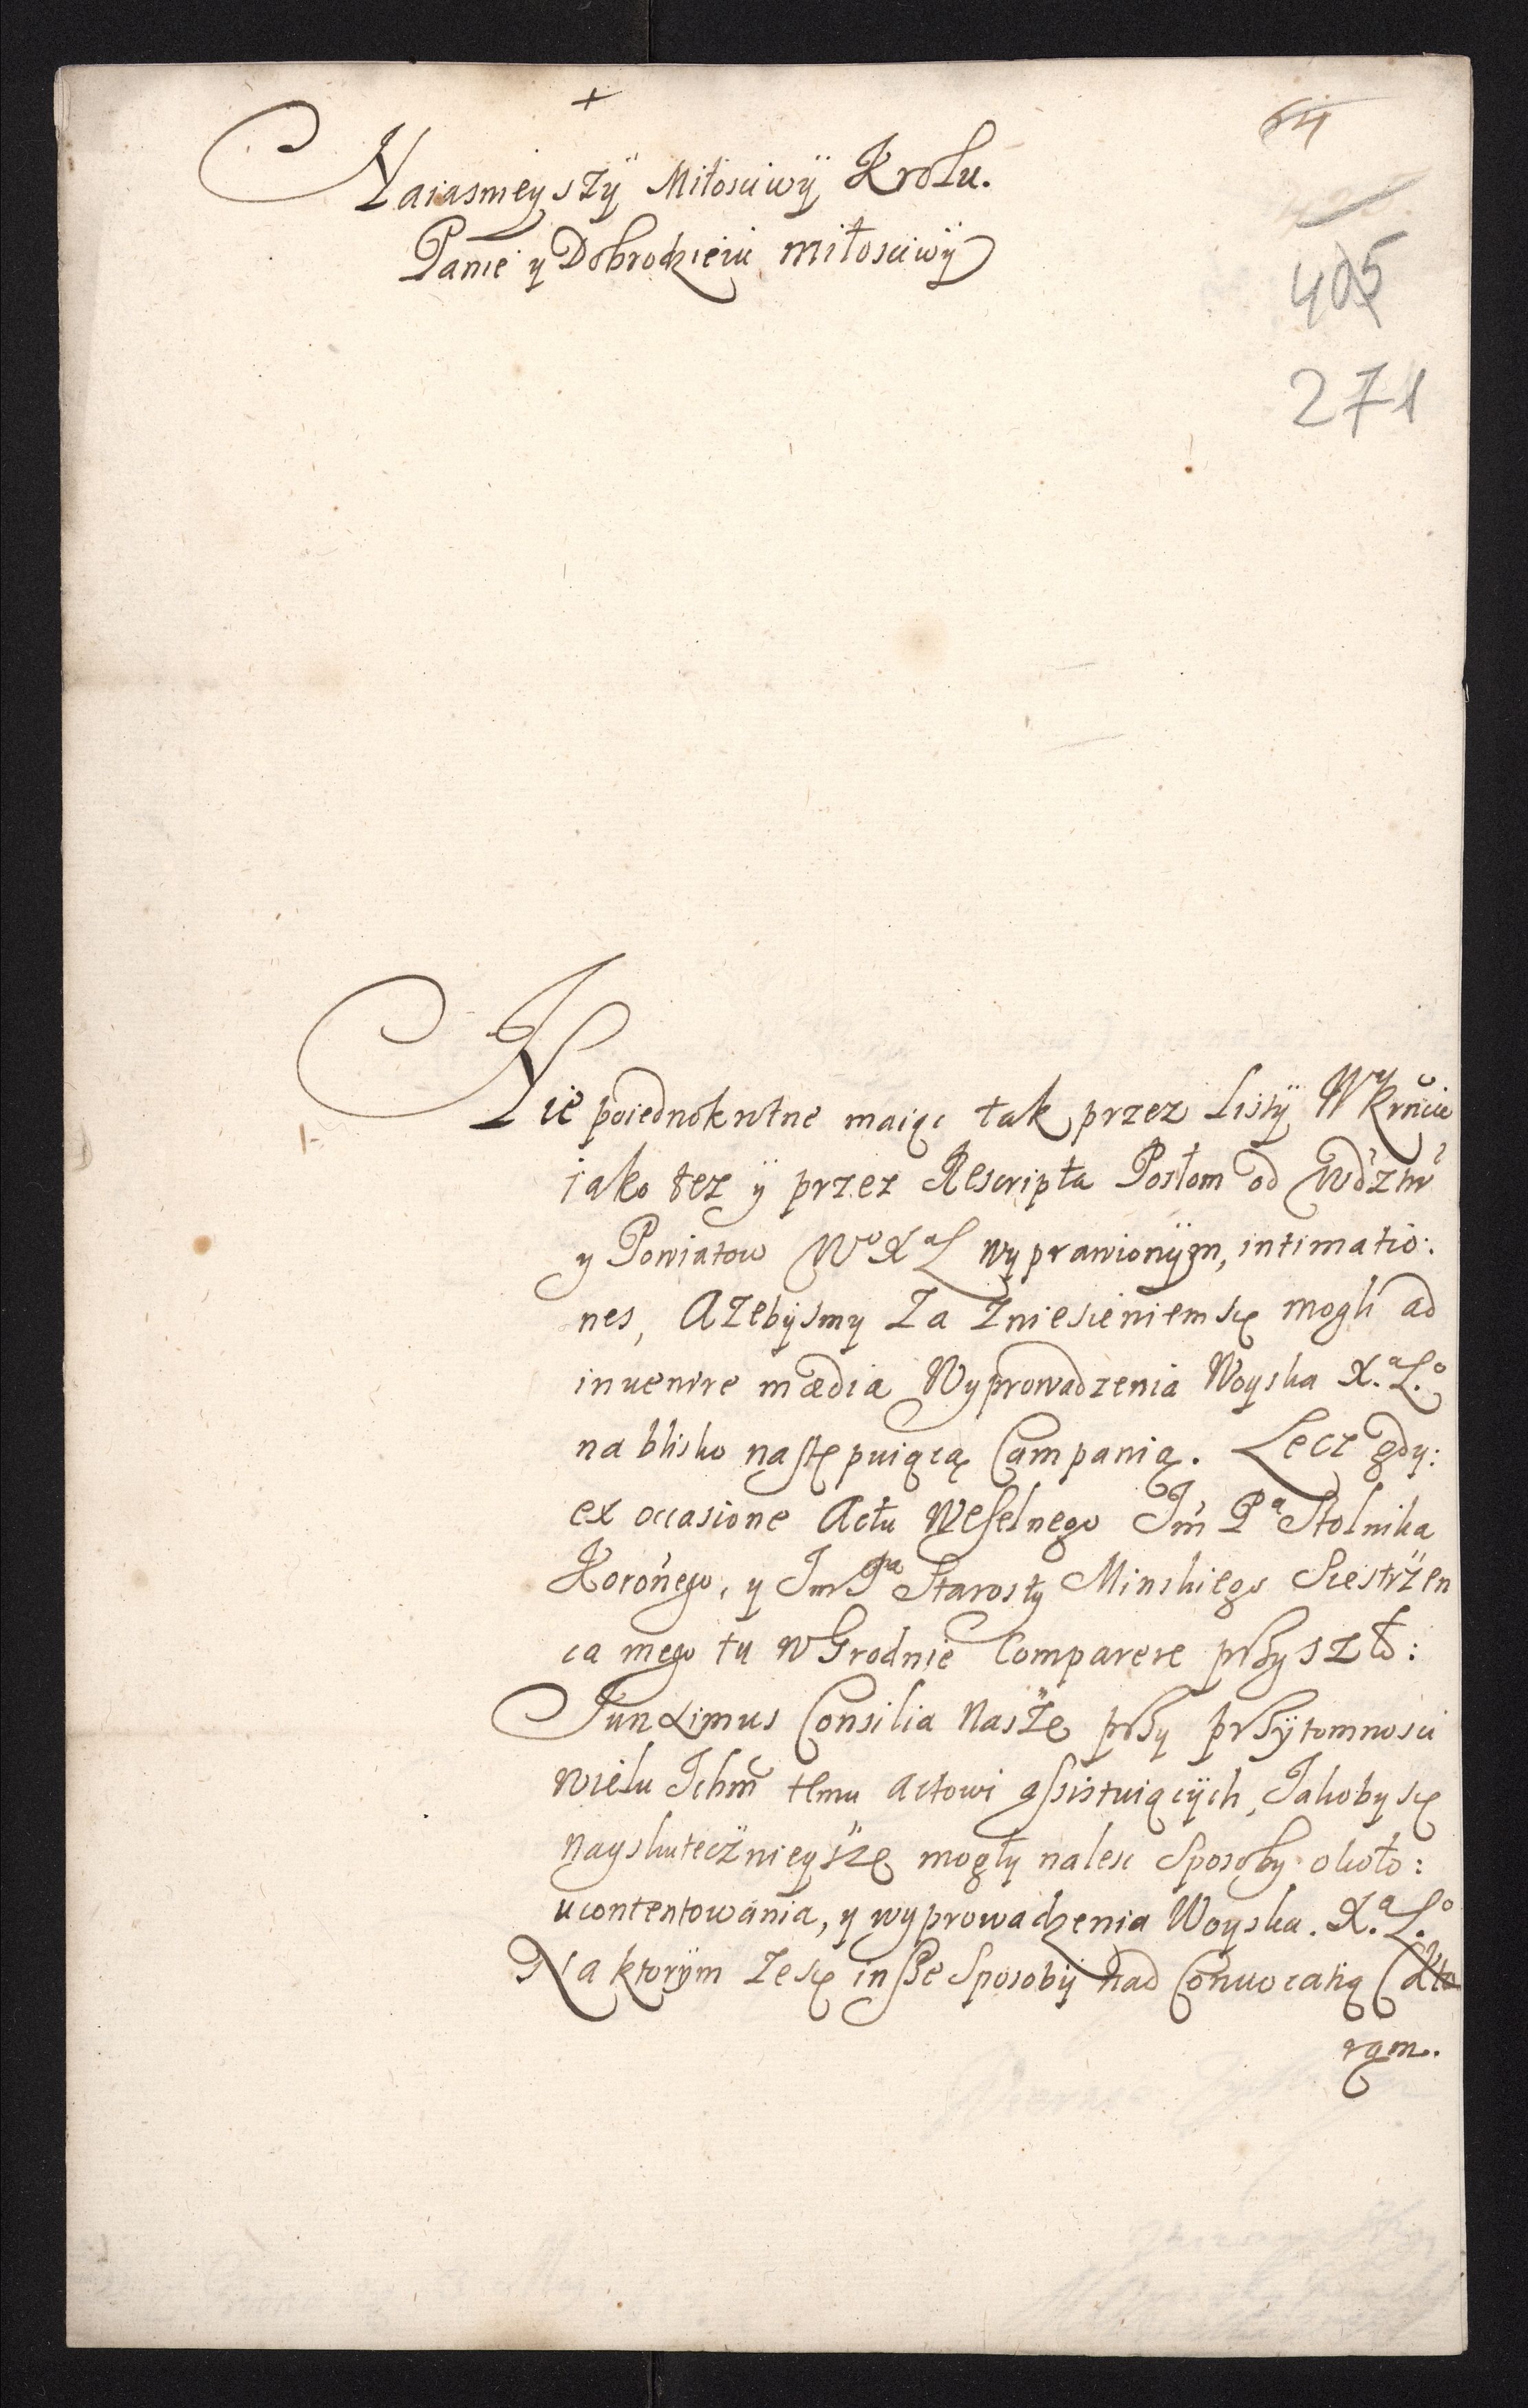 +
64
Naiasnieyszÿ Miłosciwÿ Krolu.
Panie y Dobrodzieiu miłosciwÿ
405
271
Nie poiednokrotne maiąc tak przez Listÿ WKrMcie
iako tez ÿ przez Rescripta Posłom od Wdztw
y Powiatow Wo Xa L wyprawionÿm, intimatio:
nes, Azebÿsmy za zniesieniem się mogli ad
invenire mædia Wyprowadzenia Woyska X.a L.o
na blisko następuiącą Campanią. Lecz gdy:
ex occasione Actu Weselnego Jm Pa Stolnika
Koronego, y Jm Pa Starosty Minskiego Siestrzen
ca mego tu w Grodnie Comparere przyszło:
Junximus Consilia Nasze przy przÿtomnosci
wielu Ichm temu actowi assistuiącÿch, Jakoby się
nayskutecznieysze mogły nalesc Sposoby około:
ucontentowania, y wyprowadzenia Woyska. X.a L.o
Na ktorÿm ze się insze Sposobÿ nad Convocatią
rąm.